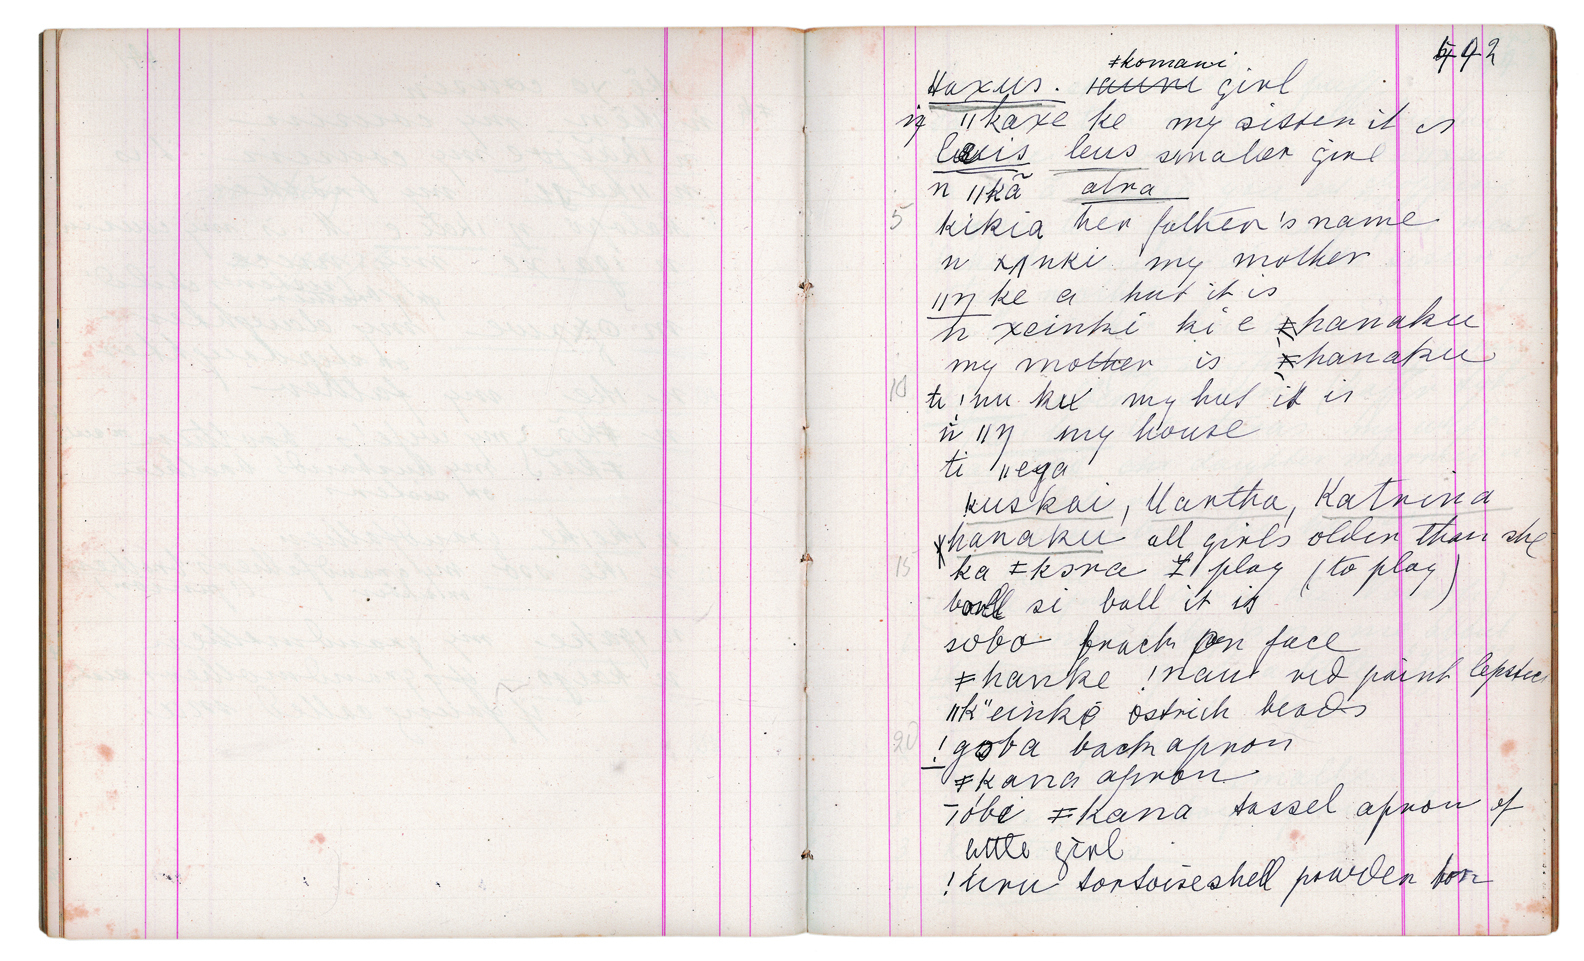 492
ǂkomani
Haxus. girl
ŋ ǁkaxe ke my sister it is
leus smaler girl
n ǁkã atra
5
kikia her father's name
n xanki my mother
ǁŋ ke a hut it is
n xeinki ki e ǂhanaku
my mother is ǂhanaku
10
ti !nu kex my hut it is
n ǁŋ my house
ti ǁega
kuskai, Martha, Katrina
ǂhanaku all girls older than she
15
ka ǂkɔra I play (to play)
ball si ball it is
sobo on face
ǂhanke !nau red paint lipstick
ǁk"einkə ostrich beads
20
!goba back apron
ǂkana apron
Tobe ǂkana tassel apron of
little girl
!uru tortoiseshell powder box